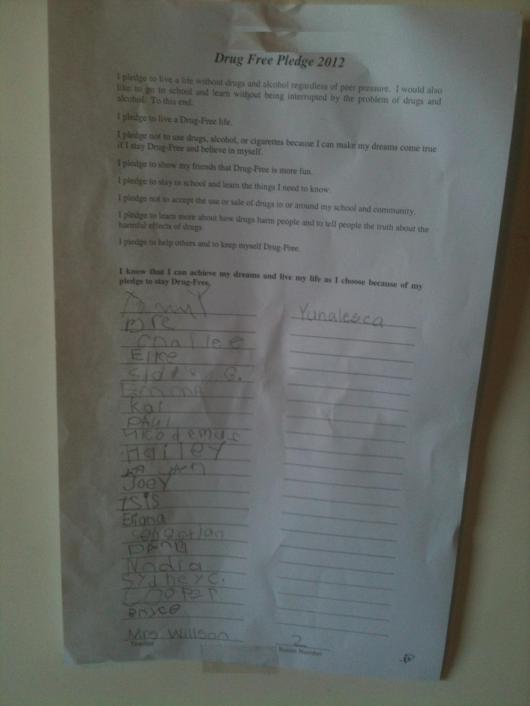 Drug Free Pledge 2012
I pledge to live a life without drugs and alcohol regardless of peer pressure. I would also
like to go to school and learn without being interrupted by the problem of drugs and
alcohol. To this end:
I pledge to live a Drug-Free life.
I pledge not to use drugs, alcohol, or cigarettes because I can make my dreams come true
if I stay Drug-Free and believe in myself.
I pledge to show my friends that Drug-Free is more fun.
I pledge to stay in school and learn the things I need to know.
I pledge not to accept the use or sale of drugs in or around my school and community.
I pledge to learn more about how drugs harm people and to tell people the truth about the
harmful effects of drugs.
I pledge to help others and to keep myself Drug-Free.
I know that I can achieve my dreams and live my life as I choose because of my
pledge to stay Drug-Free.
Yunalesca
Bre
Elke
Emma
Kai
PAUl
Nicodemus
HaiLEY
JoeY
ISIS
Eliana
Sebastian
Nadia
SYdneyC.
Cooper
Bryce
Mrs. Willson 2
Teacher Room Number